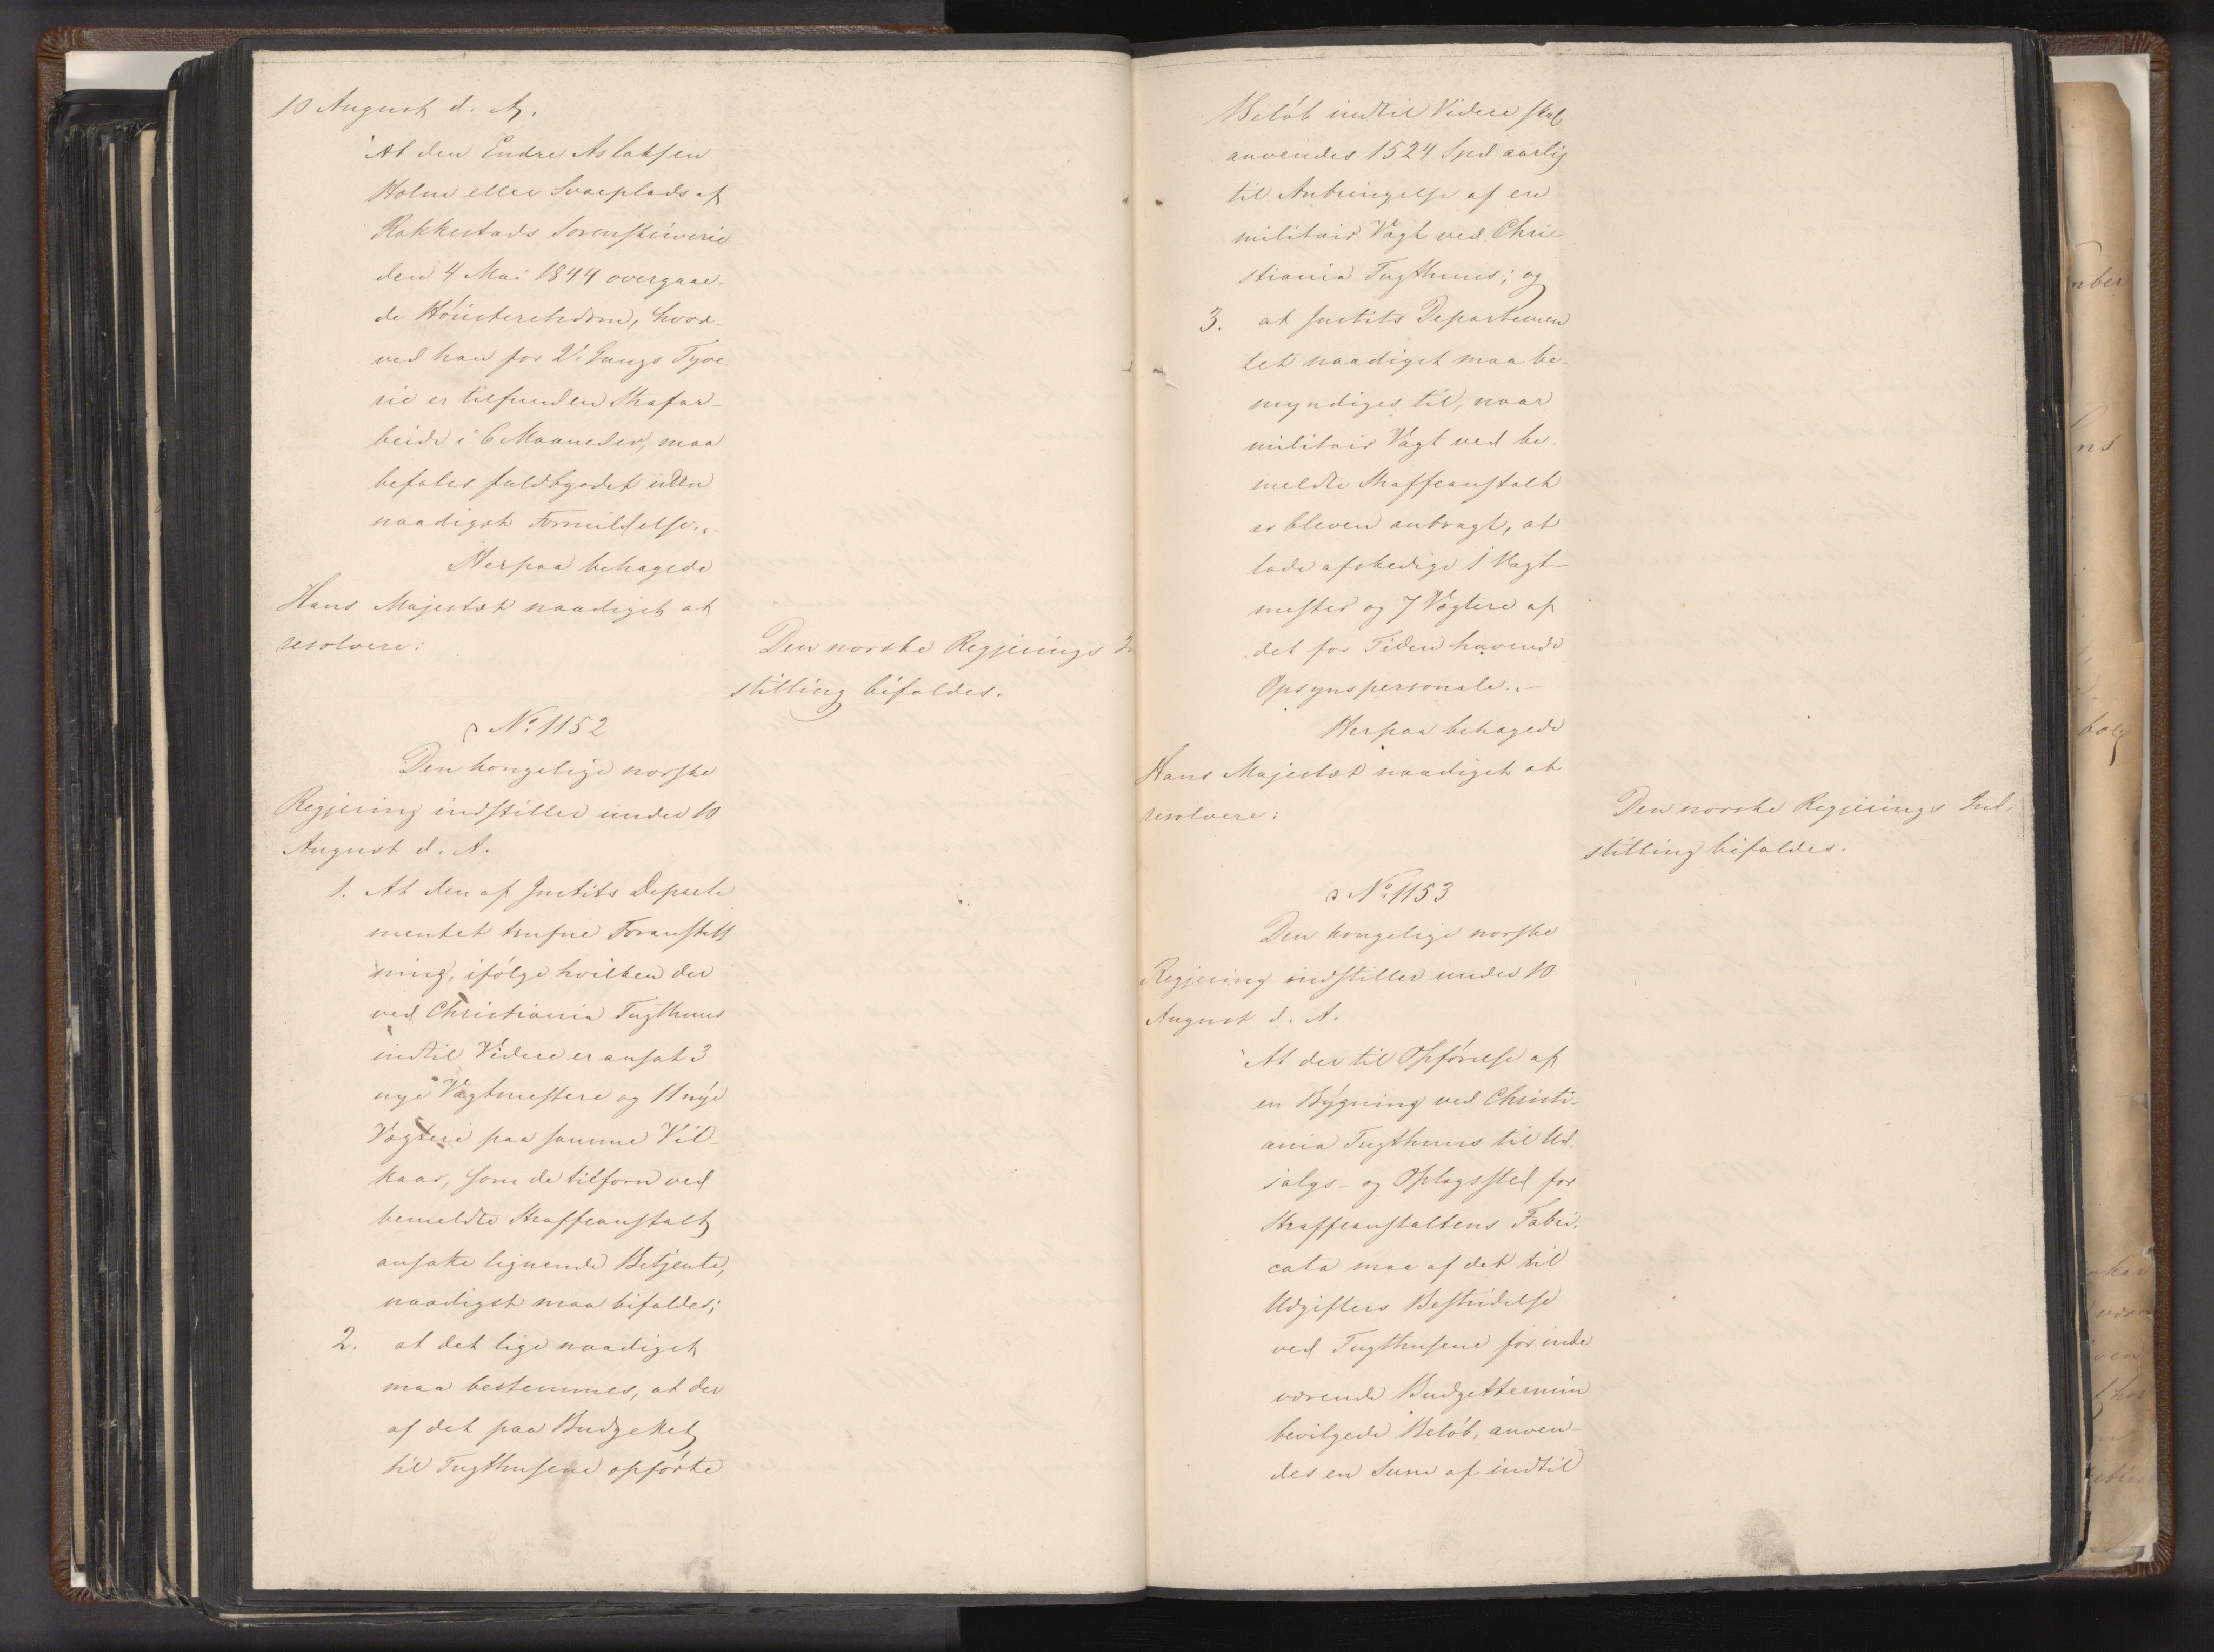 10 August d. A.
"At den Endre Aslaksen
Holm eller Svaeplads af
Rakkestads Sorenskriverie
den 4 Mai 1844 overgaae-
de Höiesteretsdom, hvor-
ved han for 2. Gangs Tyve
rie er tilfunden Strafar-
beide i 6 Maaneder, maa
befales fuldbyrdet uden
naadigst Formildelse."-
Herpaa behagede
Hans Majestæt naadigst at
resolvere:
Den norske Regjerings In
stilling bifaldes.
No. 1152
Den kongelige norske
Regjering indstiller under 10
August d. A.
1. At den af Justits Departe
mentet trufne Foranstalt
ning, ifölge hvilken der
ved Christiania Tugthuus
indtil Videre er ansat 3
nye Vagtmestere og 11 nye
Vægtere paa samme Vil-
kaar, som de tilforn ved
bemeldte Straffeanstalt
ansatte lignende Betjente,
naadigst maa bifaldes;
2. at det lige naadigst
maa bestemmes, at der
af det paa Budgettet
til Tugthusene opförte
Belöb indtil Videre skal
anvendes 1524 Spd aarlig
til Anbringelse af en
militair Vagt ved Chri-
stiania Tugthuus; og
3. at Justits Departemen
tet naadigst maa be-
myndiges til, naar
militair Vagt ved be-
meldte Straffeanstalt
er bleven anbragt, at
lade afskedige 1 Vagt-
mester og 7 Vægtere af
det for Tiden havende
Opsynspersonale."-
Herpaa behagede
Hans Majestæt naadigst at
resolvere:
Den norske Regjerings Ind-
stilling bifaldes.
No. 1153
Den kongelige norske
Regjering indstiller under 10
August d. A.
"At der til Opförelse af
en Bygning ved Christi-
ania Tugthuus til Ud-
salgs- og Oplagssted for
Straffeanstaltens Fabri-
cata maa af det til
Udgifters Bestridelse
ved Tugthusene for inde
værende Budgettermin
bevilgede Belöb, anven-
des en Sum af indtil